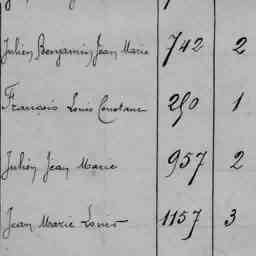 Julien Benjamin Jean Marie 742 2
François Louis Constant 250 1
Julien Jean Marie 957 2
Jean Marie Louis 1157 3